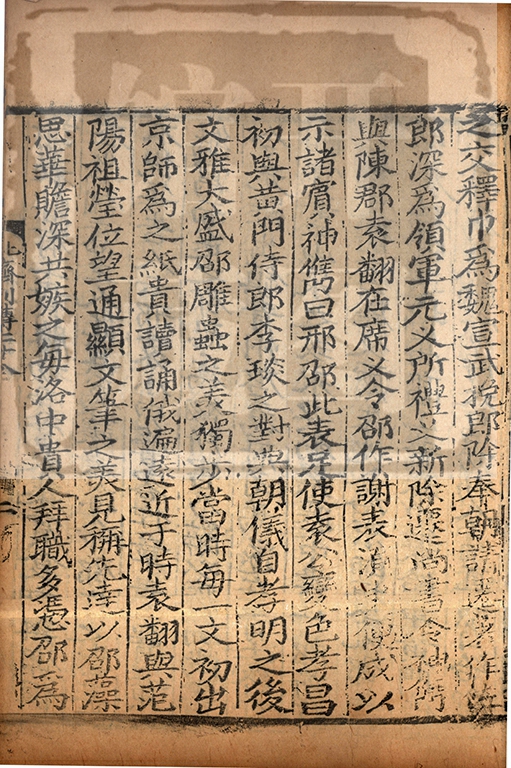 之交釋巾爲魏宣武挽郎除奉朝請遷著作佐
郎深爲領軍元义所禮义新除遷尚書令神儁
與陳郡袁翻在席义令邵作謝表須臾便成以
示諸賔神儁曰邢邵此表足使袁公變色孝昌
初與黃門侍郎李琰之對典朝儀自孝明之後
文雅大盛邵雕蟲之美獨步當時每一文初出
京師爲之紙貴讀誦俄遍遠近于時袁翻與范
陽祖瑩位望通顯文筆之美見稱先達以邵藻
思華贍深共嫉之每洛中貴人拜職多憑邵爲
列傳二十八
二